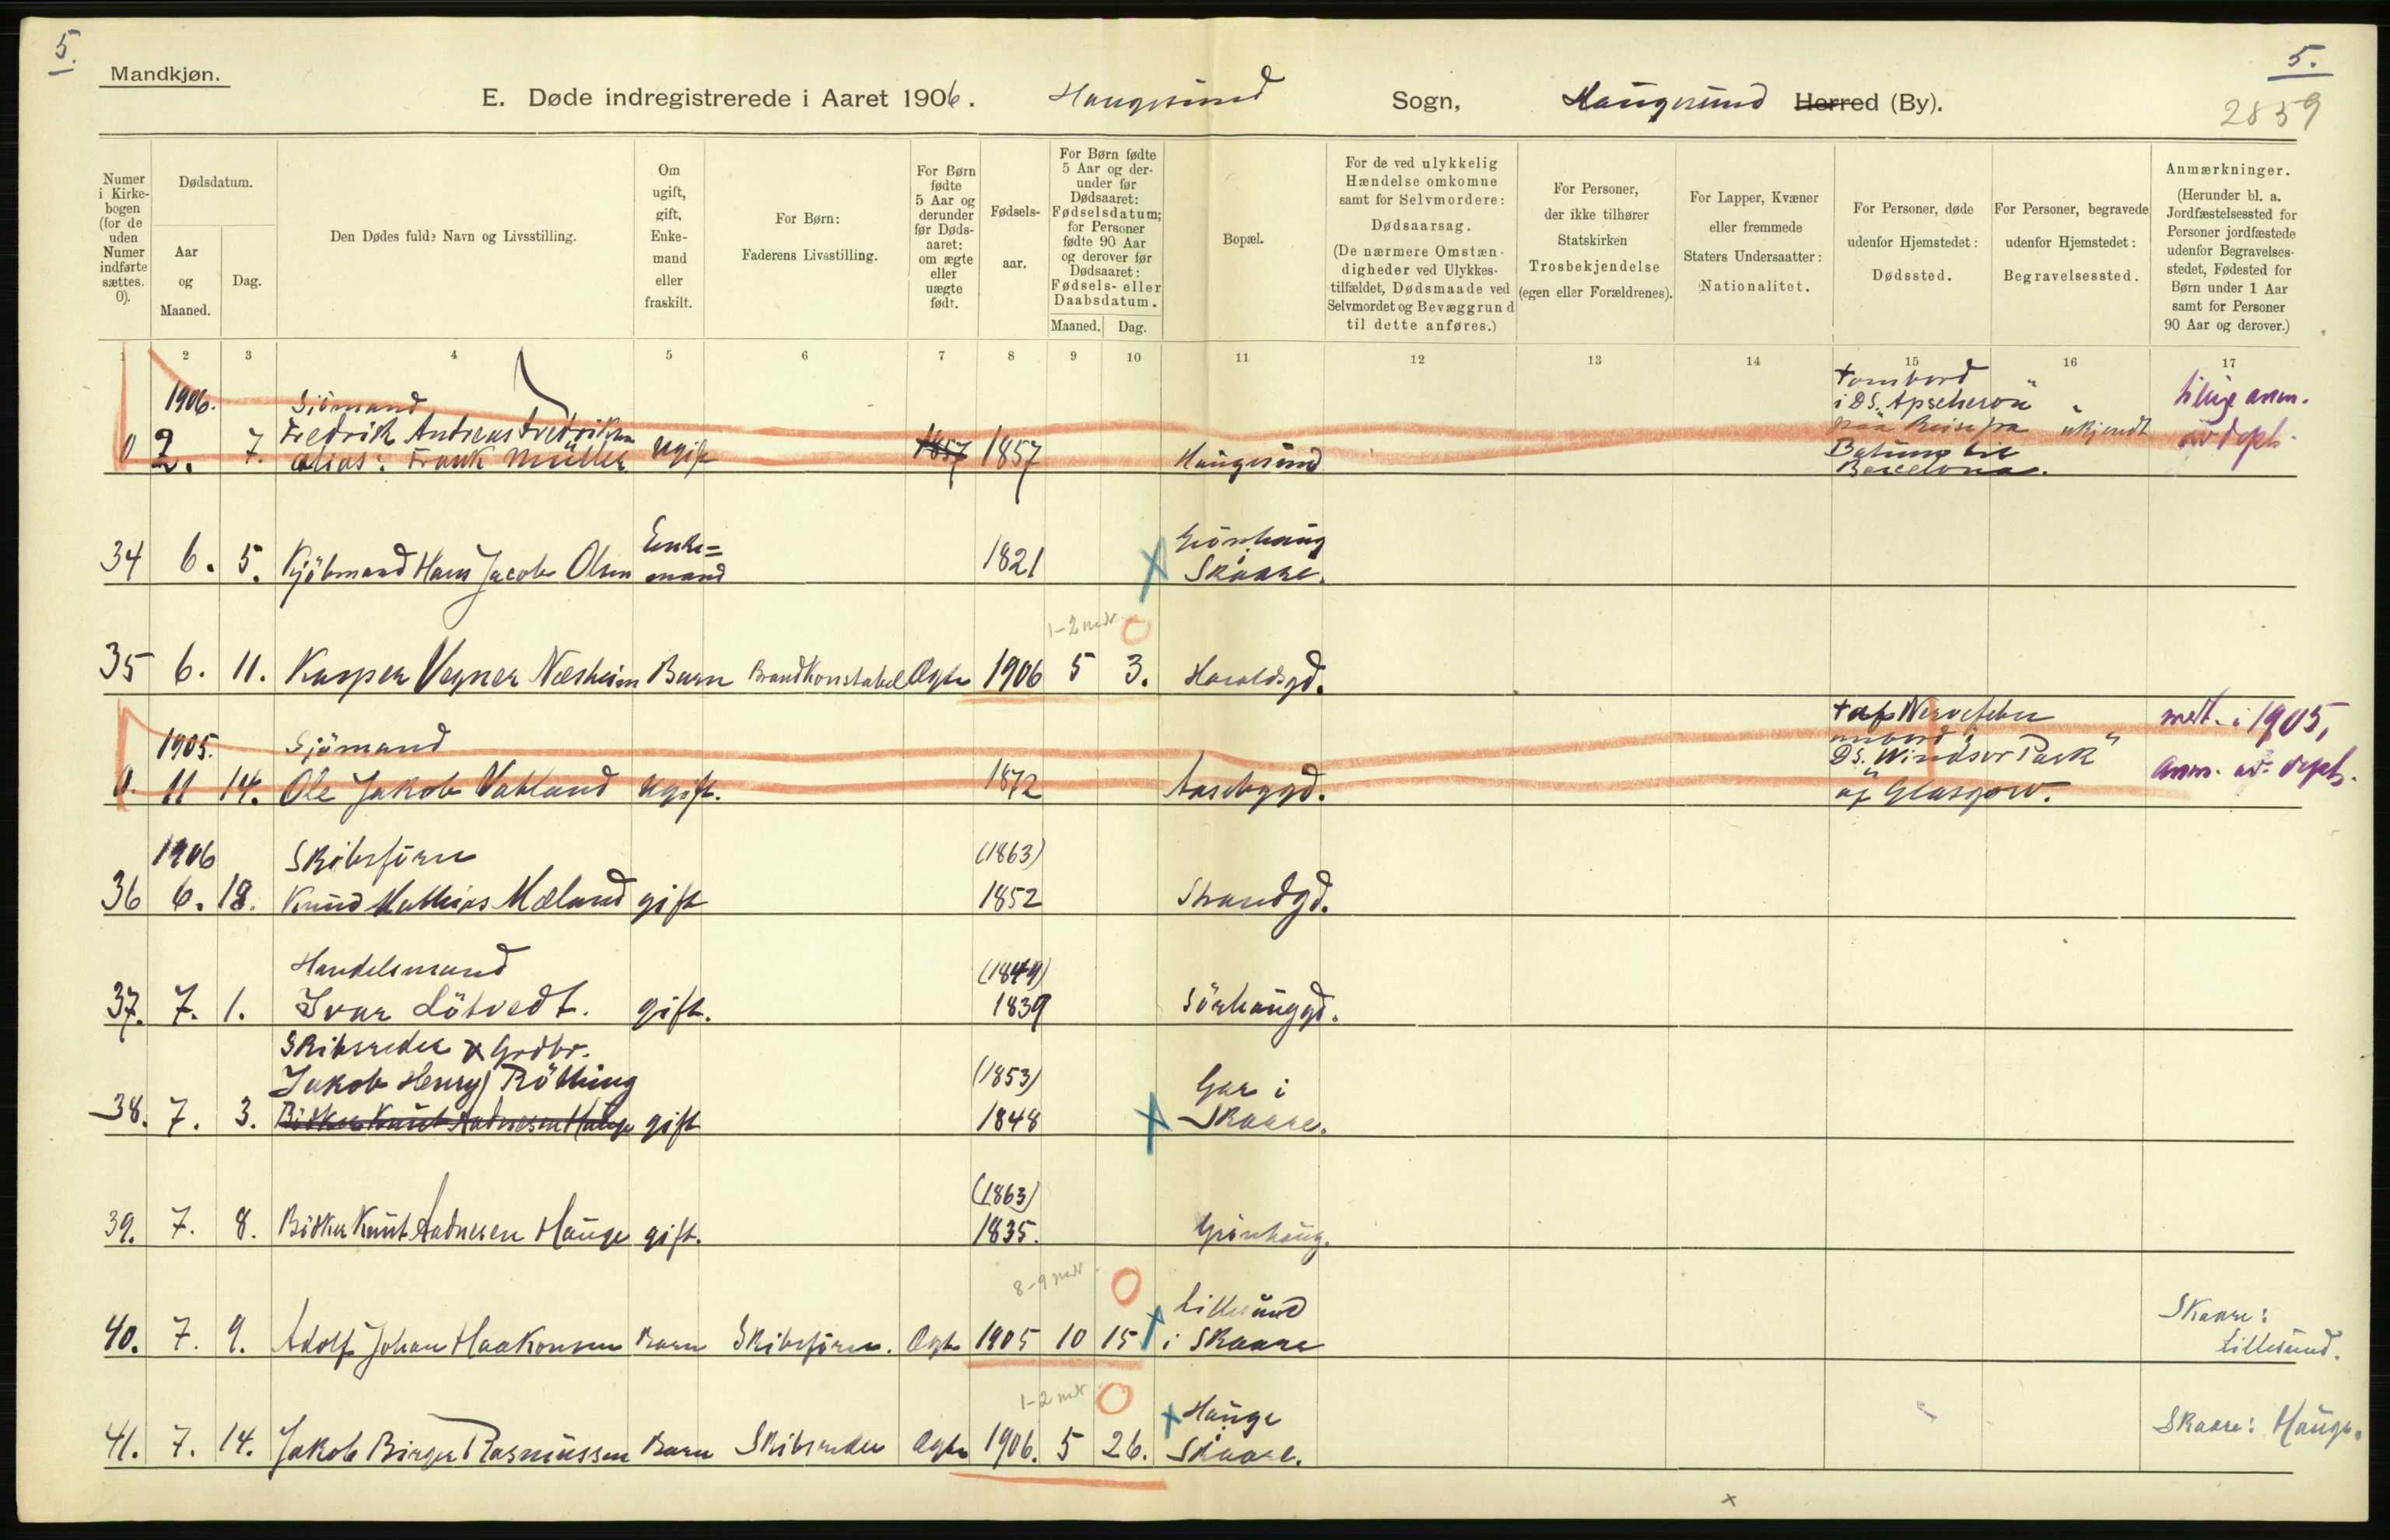 5.
5.
Mandkjøn.
2859
E. Døde indregistrerede i Aaret 1906. Haugesund Sogn, Haugesund Herred (By).
Numer i Kirkebogen (for de uden Numer indførte sættes. 0).
Dødsdatum.
Aar og Maaned.
Dag.
Den Dødes fulde Navn og Livsstilling.
Om ugift, gift, Enkemand eller fraskilt.
For Børn: Faderens Livsstilling.
For Børn fødte 5 Aar og derunder før Dødsaaret: om ægte eller uægte født.
Fødselsaar.
For Børn fødte 5 Aar og derunder før Dødsaaret: Fødselsdatum; for Personer fødte 90 Aar og derover før Dødsaaret: Fødsels- eller Daabsdatum.
Maaned. Dag.
Bopæl.
For de ved ulykkelig Hændelse omkomne samt for Selvmordere: Dødsaarsag. (De nærmere Omstændigheder ved Ulykkestilfældet, Dødsmaade ved Selvmordet og Bevæggrund til dette anføres.)
For Personer, der ikke tilhører Statskirken Trosbekjendelse (egen eller Forældrenes).
For Lapper, Kvæner eller fremmede Staters Undersaatter: Nationalitet.
For Personer, døde udenfor Hjemstedet: Dødssted.
For Personer, begravede udenfor Hjemstedet: Begravelsessted.
Anmærkninger. (Herunder bl. a. Jordfæstelsessted for Personer jordfæstede udenfor Begravelsesstedet, Fødested for Børn under 1 Aar samt for Personer 90 Aar og derover.)
1 2 3 4 5 6 7 8 9 10 11 12 13 14 15 16 17
1906. Sjömand † ombord
Fredrik Andreas Fredriksen i DS. "Apscheron"
0 2. 7. alias: Frank Müller ugift 1857 1857 Haugesund paa Reise fra Batum til Barcelona. ukjendt
anm. av dept.
34 6. 5. Kjöbmand Hans Jacob Olsen Enke=mand 1821 Grönhaug Skaare.
1-2 mdr.
35 6. 11. Kasper Vegner Næsheim Barn Brandkonstabel Ægte 1906 5 3. Haraldsgd.
1905. Sjömand † af Nervefeber ombord i
0. 11 14. Ole Jakob Vatland ugift. 1872 Aasebygd. DS. "Windsor Park" af Glasgow.
medt. i 1905, anm. av dept.
1906 Skibsförer (1863)
36 6. 18. Knud Mathias Mæland gift 1852 Strandgd.
Handelsmand (1849)
37. 7. 1. Ivar Lötvedt. gift. 1839 Sörhauggd.
Skibsreder & Grdbr.
Jakob Henry Röthing (1853) Gar i
38. 7. 3. Bödker Knut Andresen Hauge gift 1848 Skaare.
(1863)
39. 7. 8. Bödker Knut Andresen Hauge gift. 1835. Grönhaug.
8-9 mdr.
40. 7. 9. Adolf Johan Haakonsen Barn Skibsförer. Ægte 1905 10 15 Lillesund i Skaare Skaare: Lillesund.
1-2 mdr
41. 7. 14. Jakob Birger Rasmussen Barn Skibsreder Ægte 1906. 5 26. Hauge Skaare. Skaare: Hauge.